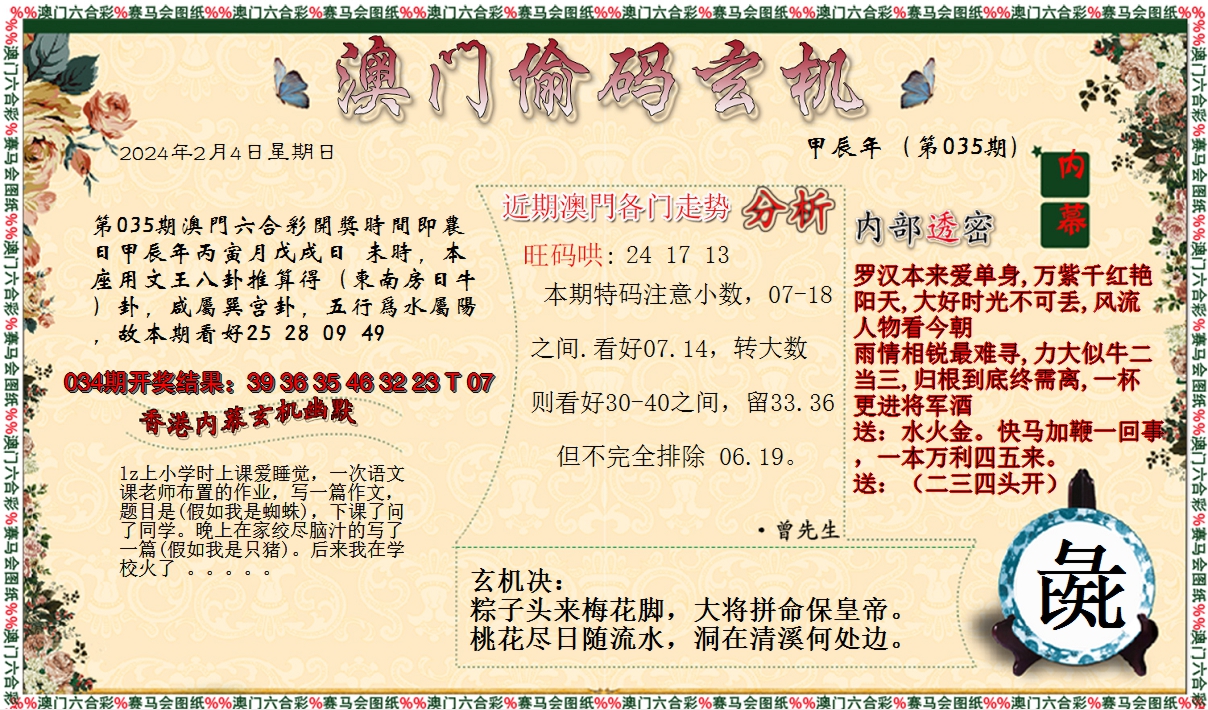 %%澳门六合彩%赛马会图纸%%澳门六合彩%赛马会图纸%%澳门六合彩%赛马会图纸%%澳门六合彩%赛马会图纸%%澳门六合彩%赛马会图纸%%澳门六合彩%赛马会图纸%%
澳门偷码玄机
2024年2月4日星期日
甲辰年（第035期）
内幕
第035期澳門六合彩開獎時間即農
日甲辰年丙寅月戊戌日 未時，本
座用文王八卦推算得（東南房日牛
）卦，咸屬巽宫卦，五行爲水屬陽
，故本期看好25 28 09 49
034期开奖结果：39 36 35 46 32 23 T 07
香港内幕玄机幽默
lz上小学时上课爱睡觉，一次语文
课老师布置的作业，写一篇作文，
题目是(假如我是蜘蛛)，下课了问
了同学。晚上在家绞尽脑汁的写了
一篇(假如我是只猪)。后来我在学
校火了 。。。。。
近期澳門各门走势 分析
旺码哄: 24 17 13
本期特码注意小数，07-18
之间.看好07.14，转大数
则看好30-40之间，留33.36
但不完全排除 06.19。
·曾先生
内部透密
罗汉本来爱单身,万紫千红艳
阳天,大好时光不可丢,风流
人物看今朝
雨情相锐最难寻,力大似牛二
当三,归根到底终需离,一杯
更进将军酒
送：水火金。快马加鞭一回事
，一本万利四五来。
送：（二三四头开）
玄机决：
粽子头来梅花脚，大将拼命保皇帝。
桃花尽日随流水，洞在清溪何处边。
%%澳门六合彩%赛马会图纸%%澳门六合彩%赛马会图纸%%澳门六合彩%赛马会图纸%%澳门六合彩%赛马会图纸%%澳门六合彩%赛马会图纸%%澳门六合彩%赛马会图纸%%